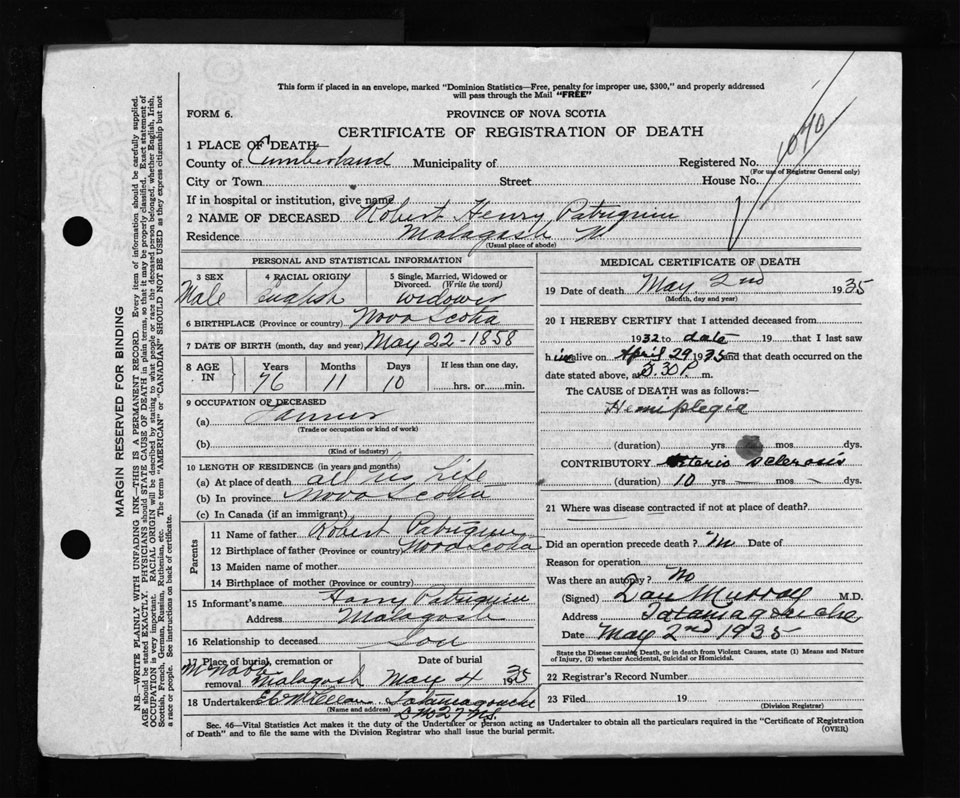 This form if placed in an envelope, marked "Dominion Statistics—Free, penalty for improper use, $300," and properly addressed
will pass through the Mail "FREE"
FORM 6.
PROVINCE OF NOVA SCOTIA
CERTIFICATE OF REGISTRATION OF DEATH
1070
1 PLACE OF DEATH—
County of Cumberland Municipality of Registered No.
(For use of Registrar General only)
City or Town Street House No.
If in hospital or institution, give name
2 NAME OF DECEASED Robert Henry Patriquin
Residence Malagash N.
(Usual place of abode)
PERSONAL AND STATISTICAL INFORMATION
3 SEX Male
4 RACIAL ORIGIN English
5 Single, Married, Widowed or Divorced. (Write the word) Widower
6 BIRTHPLACE (Province or country) Nova Scotia
7 DATE OF BIRTH (month, day and year) May 22-1858
8 AGE IN Years Months Days If less than one day,
76 11 10 hrs. or min.
9 OCCUPATION OF DECEASED
(a) Farmer
(Trade or occupation or kind of work)
(b)
(Kind of industry)
10 LENGTH OF RESIDENCE (in years and months)
(a) At place of death all his life
(b) In province Nova Scotia
(c) In Canada (if an immigrant)
Parents
11 Name of father Robert Patriquin
12 Birthplace of father (Province or country) Nova Scotia
13 Maiden name of mother
14 Birthplace of mother (Province or country)
15 Informant's name Harry Patriquin
Address Malagash
16 Relationship to deceased Son
17 Place of burial, cremation or removal McNabb Malagash
Date of burial May 4 1935
18 Undertaker Tatamagouche
(Name and address)
MEDICAL CERTIFICATE OF DEATH
19 Date of death May 2nd 1935
(Month, day and year)
20 I HEREBY CERTIFY that I attended deceased from
1932 to date 19 that I last saw
him alive on April 29 1935 and that death occurred on the
date stated above, at 5.30 P. m.
The CAUSE OF DEATH was as follows:—
Hemiplegia
(duration) yrs mos. dys.
CONTRIBUTORY Arterio sclerosis
(duration) 10 yrs. mos. dys.
21 Where was disease contracted if not at place of death?
Did an operation precede death? Date of
Reason for operation
Was there an autopsy? No
(Signed) Dan Murray M.D.
Address Tatamagouche
Date May 2nd 1935
State the Disease causing Death, or in death from Violent Causes, state (1) Means and Nature
of Injury, (2) whether Accidental, Suicidal or Homicidal.
22 Registrar's Record Number
23 Filed 19
(Division Registrar)
Sec. 46—Vital Statistics Act makes it the duty of the Undertaker or person acting as Undertaker to obtain all the particulars required in the "Certificate of Registration
of Death" and to file the same with the Division Registrar who shall issue the burial permit.
(OVER)
MARGIN RESERVED FOR BINDING
N.B.—WRITE PLAINLY WITH UNFADING INK—THIS IS A PERMANENT RECORD. Every item of information should be carefully supplied.
AGE should be stated EXACTLY. PHYSICIANS should STATE CAUSE OF DEATH in plain terms, so that it may be properly classified. Exact statement of
OCCUPATION is very important. RACIAL ORIGIN will be described by stating to what people or race the deceased person belonged, whether English, Irish,
Scottish, French, German, Russian, Ruthenian, etc. The terms "AMERICAN" or "CANADIAN" SHOULD NOT BE USED as they express citizenship but not
a race or people. See instructions on back of certificate.